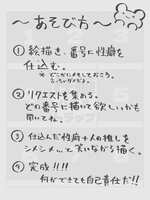 ～あそびカ～
① 絵描き、番号に性癖を
仕込む。
※どこかにメモしておこう。
② リクエストを集める。
どの番号に描いて欲しいかも
聞いてね。
③ 仕込んだ性癖+人の推しを
シメシメ…て笑いながら描く。
④ 完成!!!!
何ができても自己責任だ!!